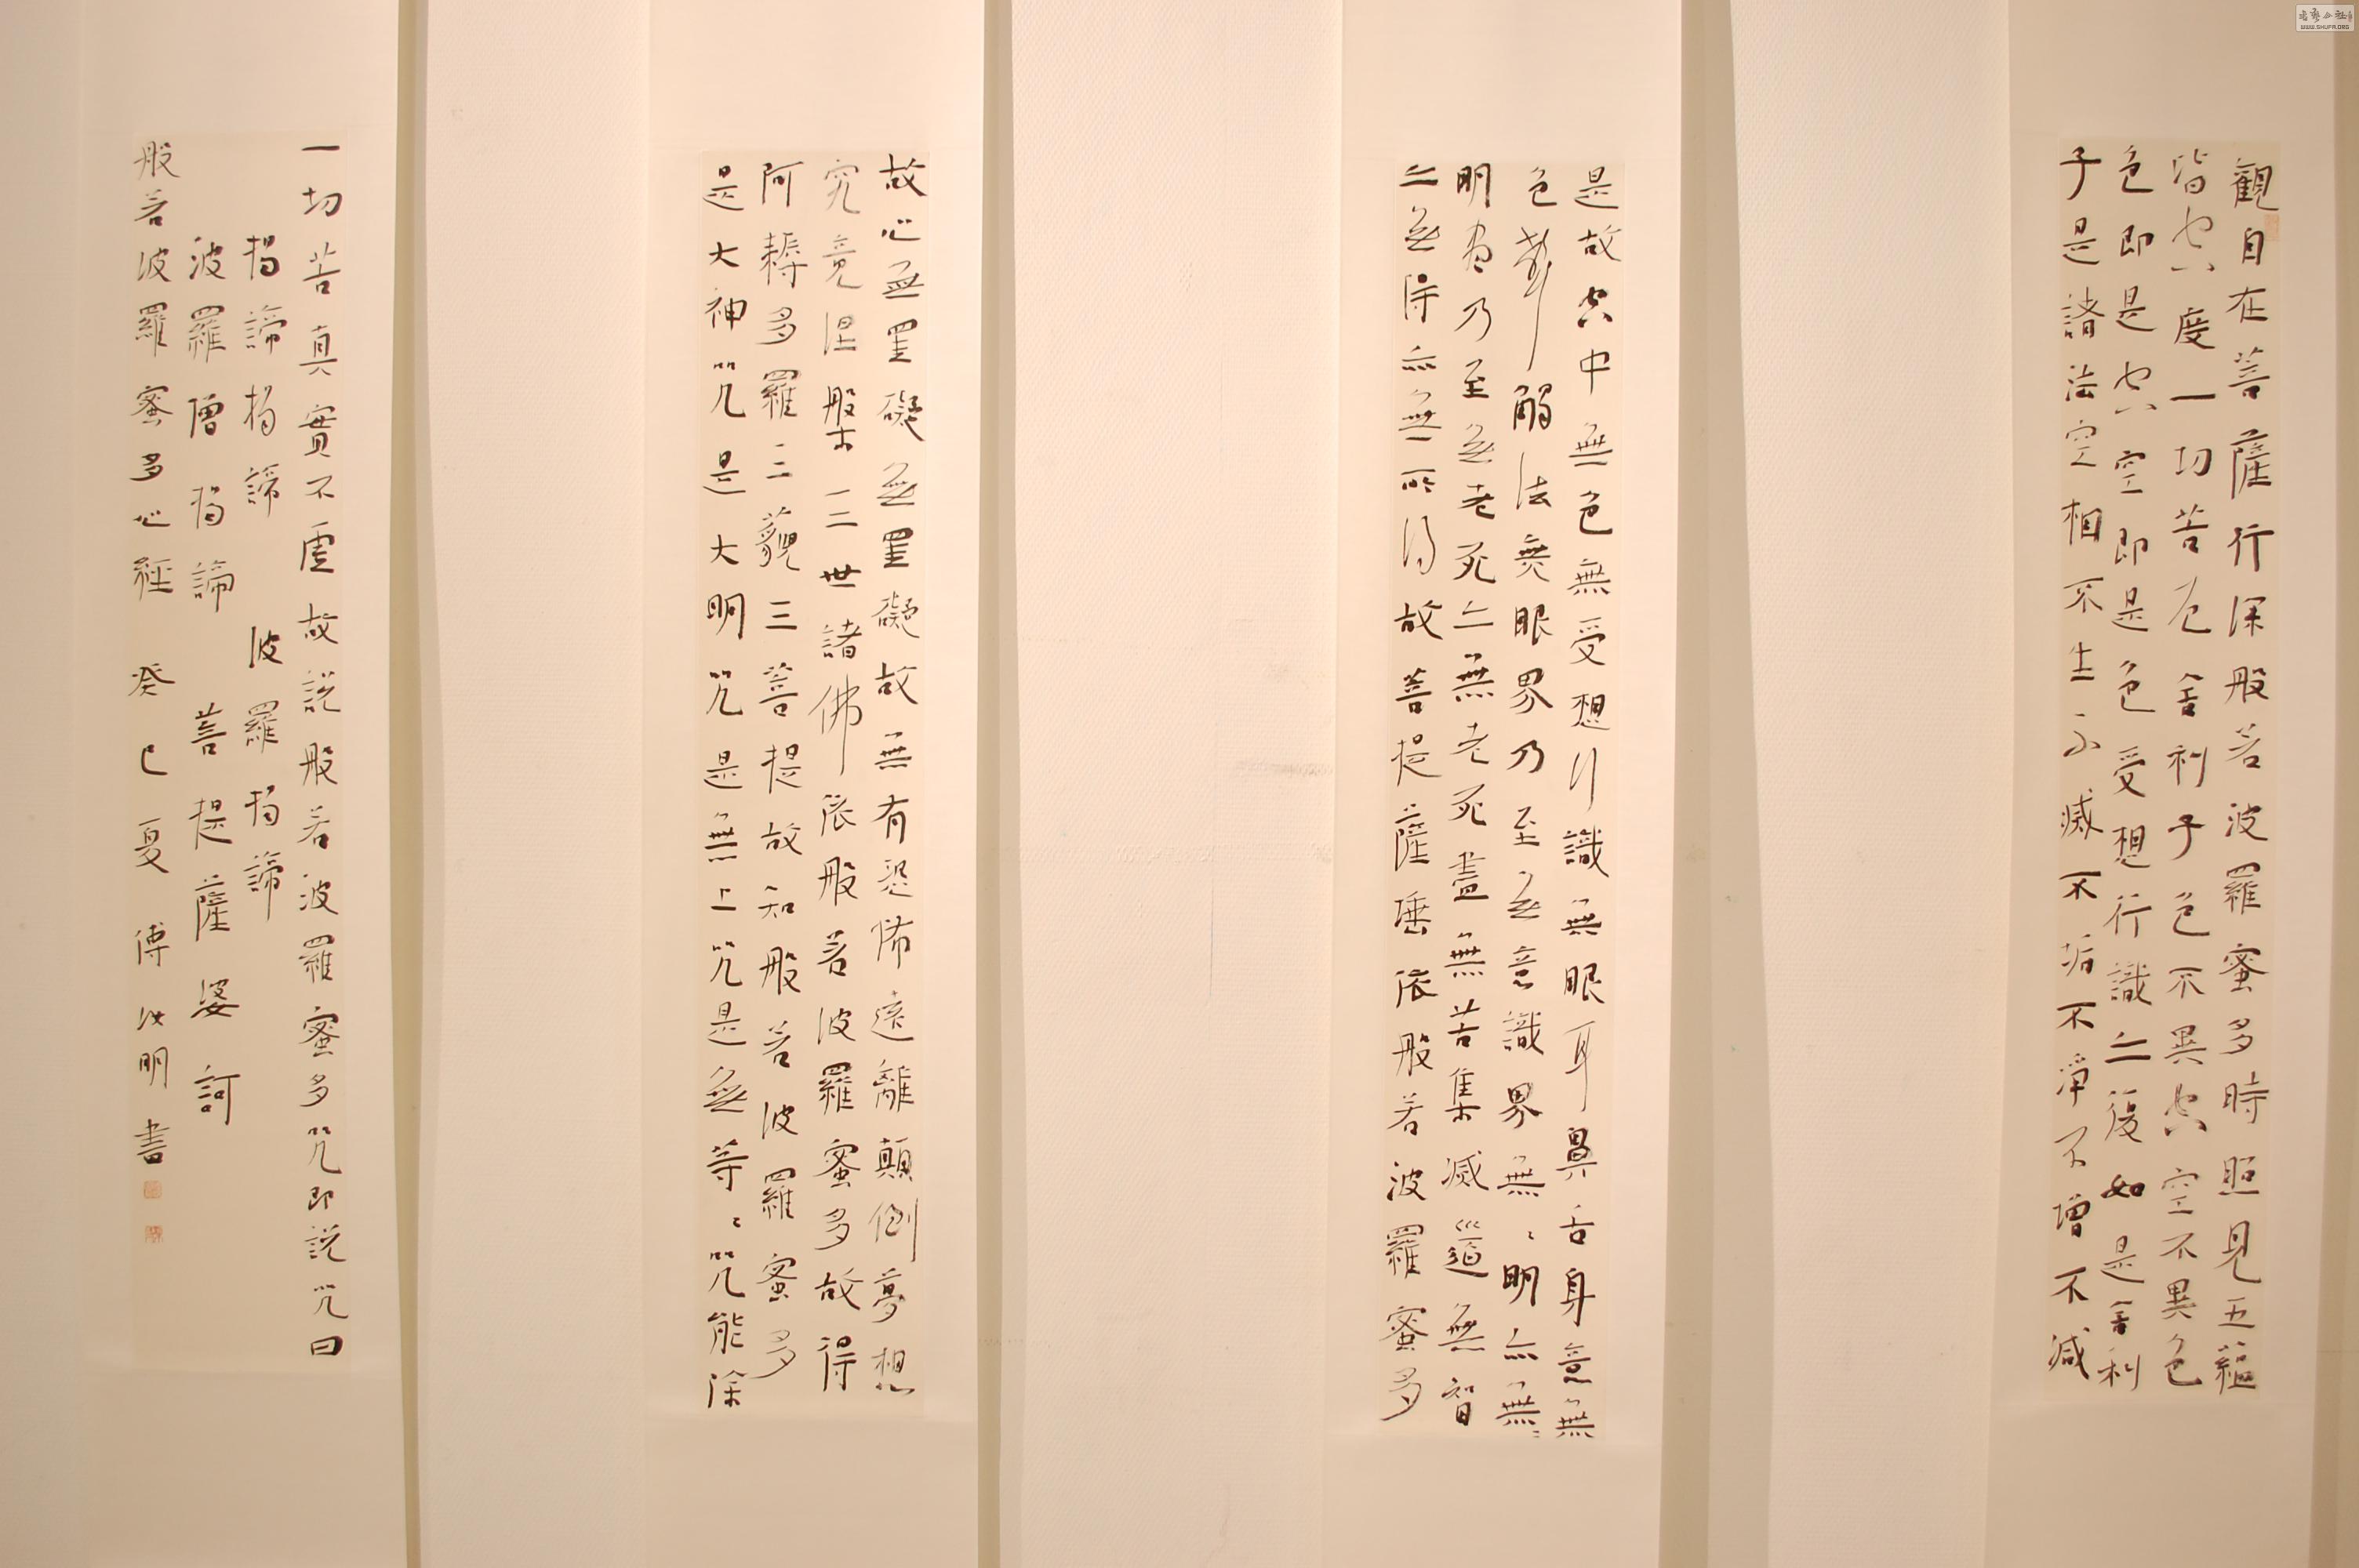 觀自在菩薩行深般若波羅蜜多時照見五蘊
皆空度一切苦厄舍利子色不異空空不異色
色即是空空即是色受想行識亦復如是舍利
子是諸法空相不生不滅不垢不淨不增不減
是故空中無色無受想行識無眼耳鼻舌身意無
色聲觸法無眼界乃至無意識界無〻明亦無〻
明盡乃至無老死亦無老死盡無苦集滅道無智
亦無得亦無所得故菩提薩埵依般若波羅蜜多
故心無罣礙無罣礙故無有恐怖遠離顛倒夢想
究竟涅槃三世諸佛依般若波羅蜜多故得
阿耨多羅三藐三菩提故知般若波羅蜜多
是大神咒是大明咒是無上咒是無等〻咒能除
一切苦真實不虛故說般若波羅蜜多咒即說咒曰
揭諦揭諦 波羅揭諦
波羅僧揭諦 菩提薩婆訶
般若波羅蜜多心經 癸巳夏 傅 明書
WWW.SHUFA.ORG